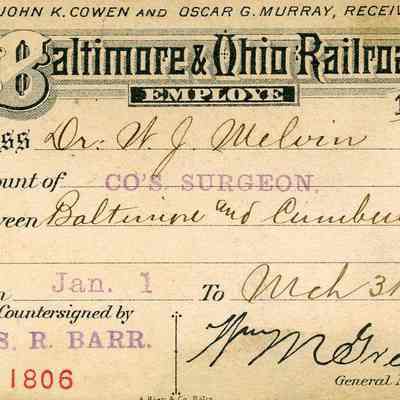 JOHN K. COWEN AND OSCAR G. MURRAY, RECEIV
Baltimore & Ohio Railroa
EMPLOYE
1
ss Dr. W. J. Melvin
ount of CO'S. SURGEON.
ween Baltimore and Cumber
n Jan. 1 To Mch 31
Countersigned by
S. R. BARR.
Wm M Gre
1806
General M
A. Hoen & Co. Balto.